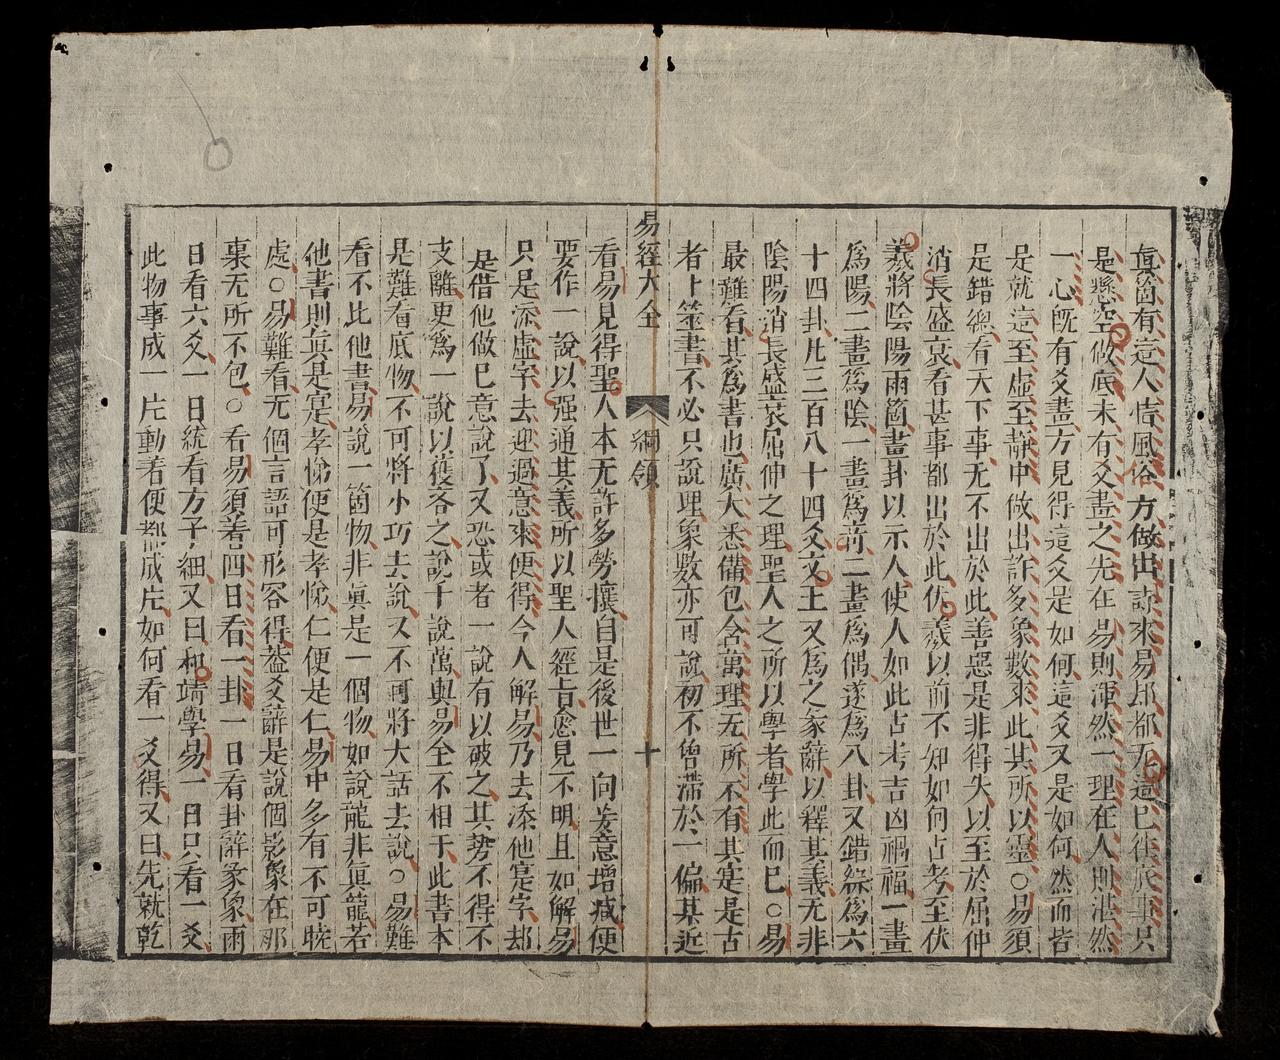 真箇有這人情風俗方做出詩來易却都无這巳往底事只
是懸空做底未有爻畫之先在易則渾然一理在人則湛然
一心旣有爻畫方見得這爻是如何這爻又是如何然而皆
是就這至虛至靜中做出許多象數來此其所以靈○易須
是錯總看天下事无不出於此善惡是非得失以至於屈伸
消長盛衰看甚事都出於此伏羲以前不知如何占考至伏
羲將陰陽兩箇畫卦以示人使人如此占考吉凶禍福一畫
爲陽二畫爲陰一畫爲竒二畫爲偶遂爲八卦又錯綜爲六
十四卦凡三百八十四爻文王又爲之彖辭以釋其義无非
陰陽消長盛衰屈伸之理聖人之所以學者學此而巳○易
最難看其爲書也廣大悉備包含萬理无所不有其寔是古
者卜筮書不必只說理象數亦可說初不曾滯於一偏某近
易經大全 綱領 十
看易見得聖人本无許多勞攘自是後世一向差意增减便
要作一說以强通其義所以聖人經旨愈見不明且如解易
只是添虛字去迎過意來便得今人解易乃去添他寔字却
是借他做巳意說了又恐或者一說有以破之其勢不得不
支離更爲一說以獲吝之說千說萬與易全不相于此書本
是難看底物不可將小巧去說又不可將大話去說○易難
看不比他書易說一箇物非眞是一個物如說龍非眞龍若
他書則眞是寔孝悌便是孝悌仁便是仁易中多有不可曉
處○易難看无個言語可形容得葢爻辭是說個影象在那
裏无所不包○看易須着四日看一卦一日看卦辭彖象兩
日看六爻一日統看方子細又曰和靖學易一日只看一爻
此物事成一片動着便都成片如何看一爻得又曰先就乾